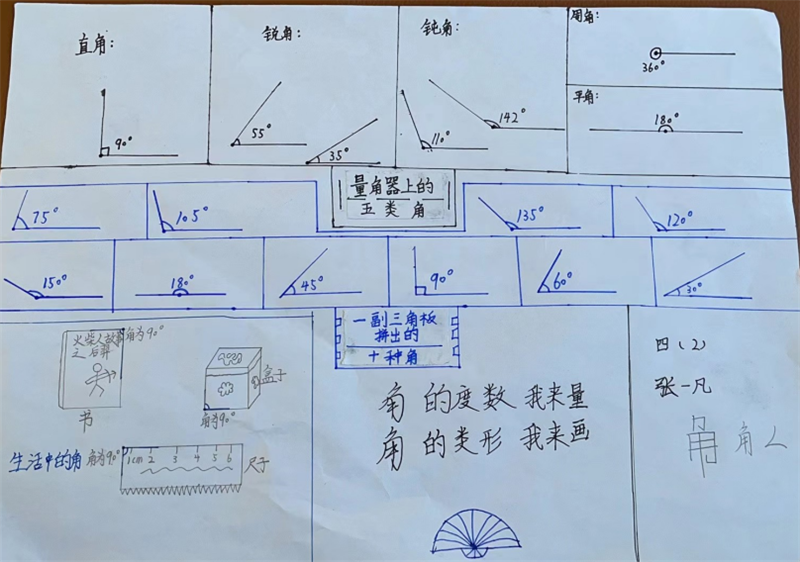 直角：
90°
锐角：
55°
35°
钝角：
110°
142°
周角：
360°
平角：
180°
量角器上的
五类角
75°
105°
135°
120°
150°
180°
45°
90°
60°
30°
一副三角板
拼出的
十种角
火柴人故事
之后羿
角为90°
书
盒子
角为90°
生活中的角
角为90°
1cm 2 3 4 5 6
尺子
角的度数 我来量
角的类形 我来画
四（2）
张一凡
角 角